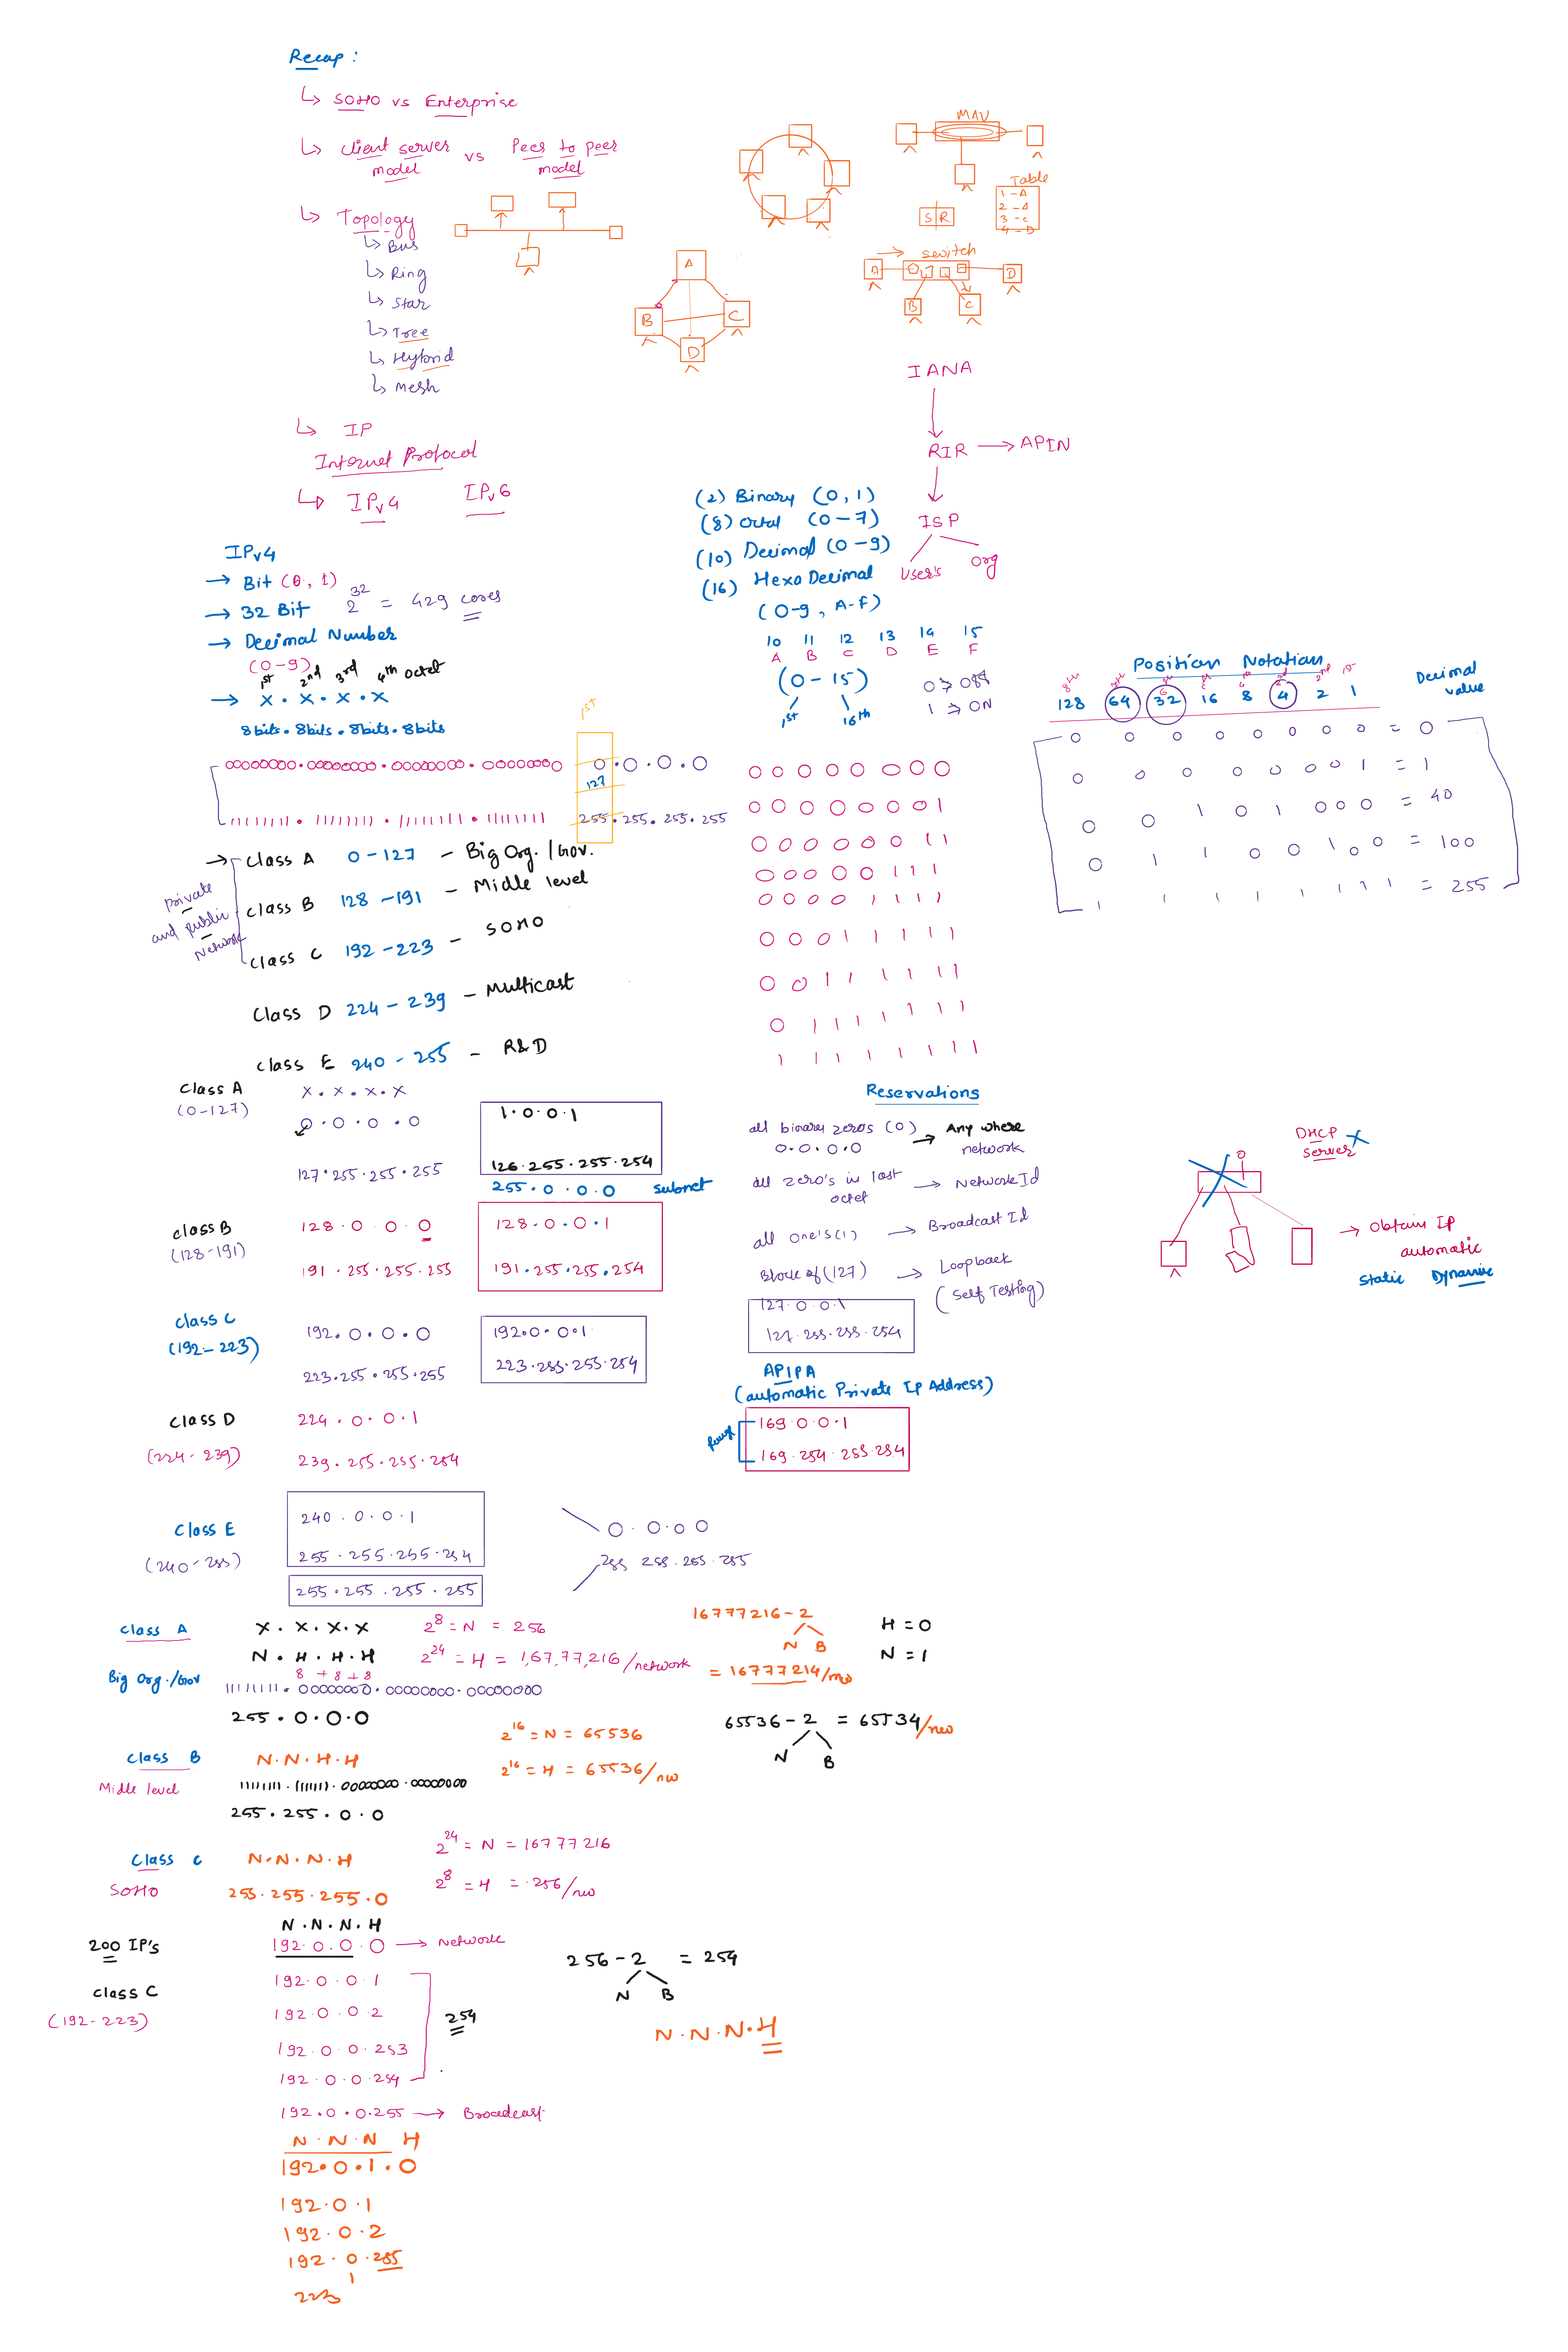 Recap :
↳ SOHO vs Enterprise
↳ client server model vs Peer to peer model
↳ Topology
↳ Bus
↳ Ring
↳ Star
↳ Tree
↳ Hybrid
↳ Mesh
A
B
C
D
MAU
Table
1 - A
2 - A
3 - C
4 - D
S R
→ switch
A
B
C
D
↳ IP
Internet Protocol
↳ IPv4 IPv6
IANA
RIR → APIN
ISP
User's org
IPv4
→ Bit (0, 1)
→ 32 Bit 2^32 = 429 cores
→ Decimal Number
(0-9)
1st 2nd 3rd 4th octet
→ X . X . X . X
8bits . 8bits . 8bits . 8bits
00000000 . 00000000 . 00000000 . 00000000
11111111 . 11111111 . 11111111 . 11111111
1st
0 . 0 . 0 . 0
127
255 . 255 . 255 . 255
(2) Binary (0, 1)
(8) octal (0-7)
(10) Decimal (0-9)
(16) Hexa Decimal
(0-9, A-F)
10 11 12 13 14 15
A B C D E F
(0-15)
1st 16th
0 ⇒ OFF
1 ⇒ ON
0 0 0 0 0 0 0 0
0 0 0 0 0 0 0 1
0 0 0 0 0 0 1 1
0 0 0 0 0 1 1 1
0 0 0 0 1 1 1 1
0 0 0 1 1 1 1 1
0 0 1 1 1 1 1 1
0 1 1 1 1 1 1 1
1 1 1 1 1 1 1 1
Position Notation
2nd 1st
128 64 32 16 8 4 2 1 Decimal value
0 0 0 0 0 0 0 0 = 0
0 0 0 0 0 0 0 1 = 1
0 0 1 0 1 0 0 0 = 40
0 1 1 0 0 1 0 0 = 100
1 1 1 1 1 1 1 1 = 255
private and public Network
→ Class A 0-127 - Big Org. /Gov.
Class B 128-191 - Midle level
Class C 192-223 - SOHO
Class D 224-239 - Multicast
Class E 240-255 - R&D
Class A
(0-127)
X . X . X . X
0 . 0 . 0 . 0
127 . 255 . 255 . 255
1 . 0 . 0 . 1
126 . 255 . 255 . 254
255 . 0 . 0 . 0 subnet
class B
(128-191)
128 . 0 . 0 . 0
191 . 255 . 255 . 255
128 . 0 . 0 . 1
191 . 255 . 255 . 254
Class C
(192-223)
192 . 0 . 0 . 0
223 . 255 . 255 . 255
192 . 0 . 0 . 1
223 . 255 . 255 . 254
Class D
(224-239)
224 . 0 . 0 . 1
239 . 255 . 255 . 254
Class E
(240-255)
240 . 0 . 0 . 1
255 . 255 . 255 . 254
255 . 255 . 255 . 255
0 . 0 . 0 0
255 255 . 255 . 255
Reservations
all binary zeros (0)
0 . 0 . 0 . 0 → Any where network
all zero's in last octet → Network Id
all one's (1) → Broadcast Id
Block of (127) → Loopback
(Self Testing)
127 . 0 . 0 . 1
127 . 255 . 255 . 254
APIPA
(automatic Private Ip Address)
169 . 0 . 0 . 1
169 . 254 . 255 . 254
DHCP Server X
→ Obtain Ip automatic
Static Dynamic
Class A
Big Org./Gov
X . X . X . X
N . H . H . H
8 + 8 + 8
11111111 . 00000000 . 00000000 . 00000000
255 . 0 . 0 . 0
2^8 = N = 256
2^24 = H = 1,67,77,216 / network
16777216 - 2
N B
= 16777214 / nw
H = 0
N = 1
Class B
Midle level
N . N . H . H
11111111 . 11111111 . 00000000 . 00000000
255 . 255 . 0 . 0
2^16 = N = 65536
2^16 = H = 65536 / nw
65536 - 2 = 65534 / nw
N B
Class C
SOHO
N . N . N . H
255 . 255 . 255 . 0
2^24 = N = 16777216
2^8 = H = 256 / nw
200 IP's
class C
(192-223)
N . N . N . H
192 . 0 . 0 . 0 → Network
192 . 0 . 0 . 1
192 . 0 . 0 . 2
192 . 0 . 0 . 253
192 . 0 . 0 . 254
254
192 . 0 . 0 . 255 → Broadcast
256 - 2 = 254
N B
N . N . N . H
N . N . N H
192 . 0 . 1 . 0
192 . 0 . 1
192 . 0 . 2
192 . 0 . 255
1
223